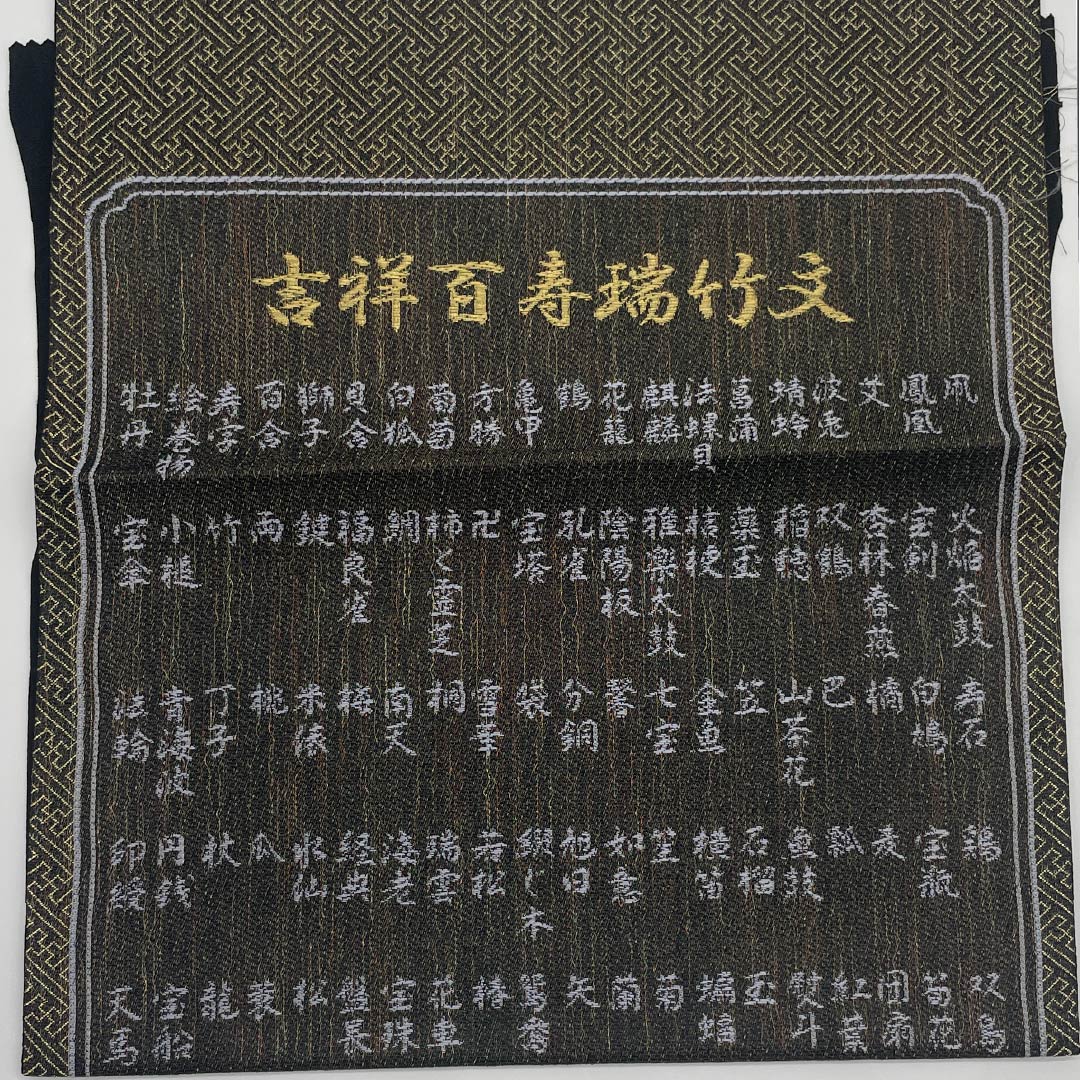 吉祥百寿瑞竹文
鳳凰 艾 波兎 蜻蛉 菖蒲 法螺貝 麒麟 花籠 鶴 亀甲 方勝 白狐 貝合 獅子 百合 寿字 絵巻物 牡丹
火焔太鼓 宝剣 杏林春燕 双鶴 稲穂 薬玉 桔梗 雅楽太鼓 陰陽板 孔雀 宝塔 卍 柿と霊芝 鯛 福良雀 鍵 両 竹 小槌 宝傘
寿石 白鳩 橘 巴 山茶花 笠 金魚 七宝 磬 分銅 袋 雪華 桐 南天 梅 米俵 桃 丁子 青海波 法輪
鶏 宝瓶 麦 瓢 魚鼓 石榴 横笛 笙 如意 旭日 若松 瑞雲 海老 経典 水仙 瓜 杖 円銭 印綬
双鳥 団扇 紅葉 熨斗 玉 蝙蝠 菊 蘭 矢 鴛鴦 椿 花車 宝珠 盤長 松 蓑 龍 宝船 天馬